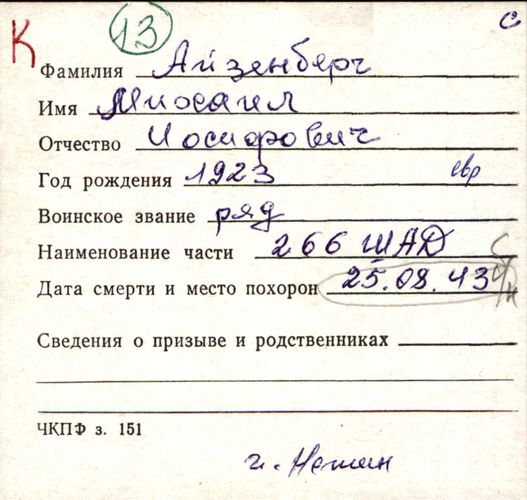 К 13 С
Фамилия Айзенберг
Имя Миосаил
Отчество Иосифович
Год рождения 1923 евр
Воинское звание ряд
Наименование части 266 ШАД
Дата смерти и место похорон 25.08.43
Сведения о призыве и родственниках
ЧКПФ з. 151
г. Нежин